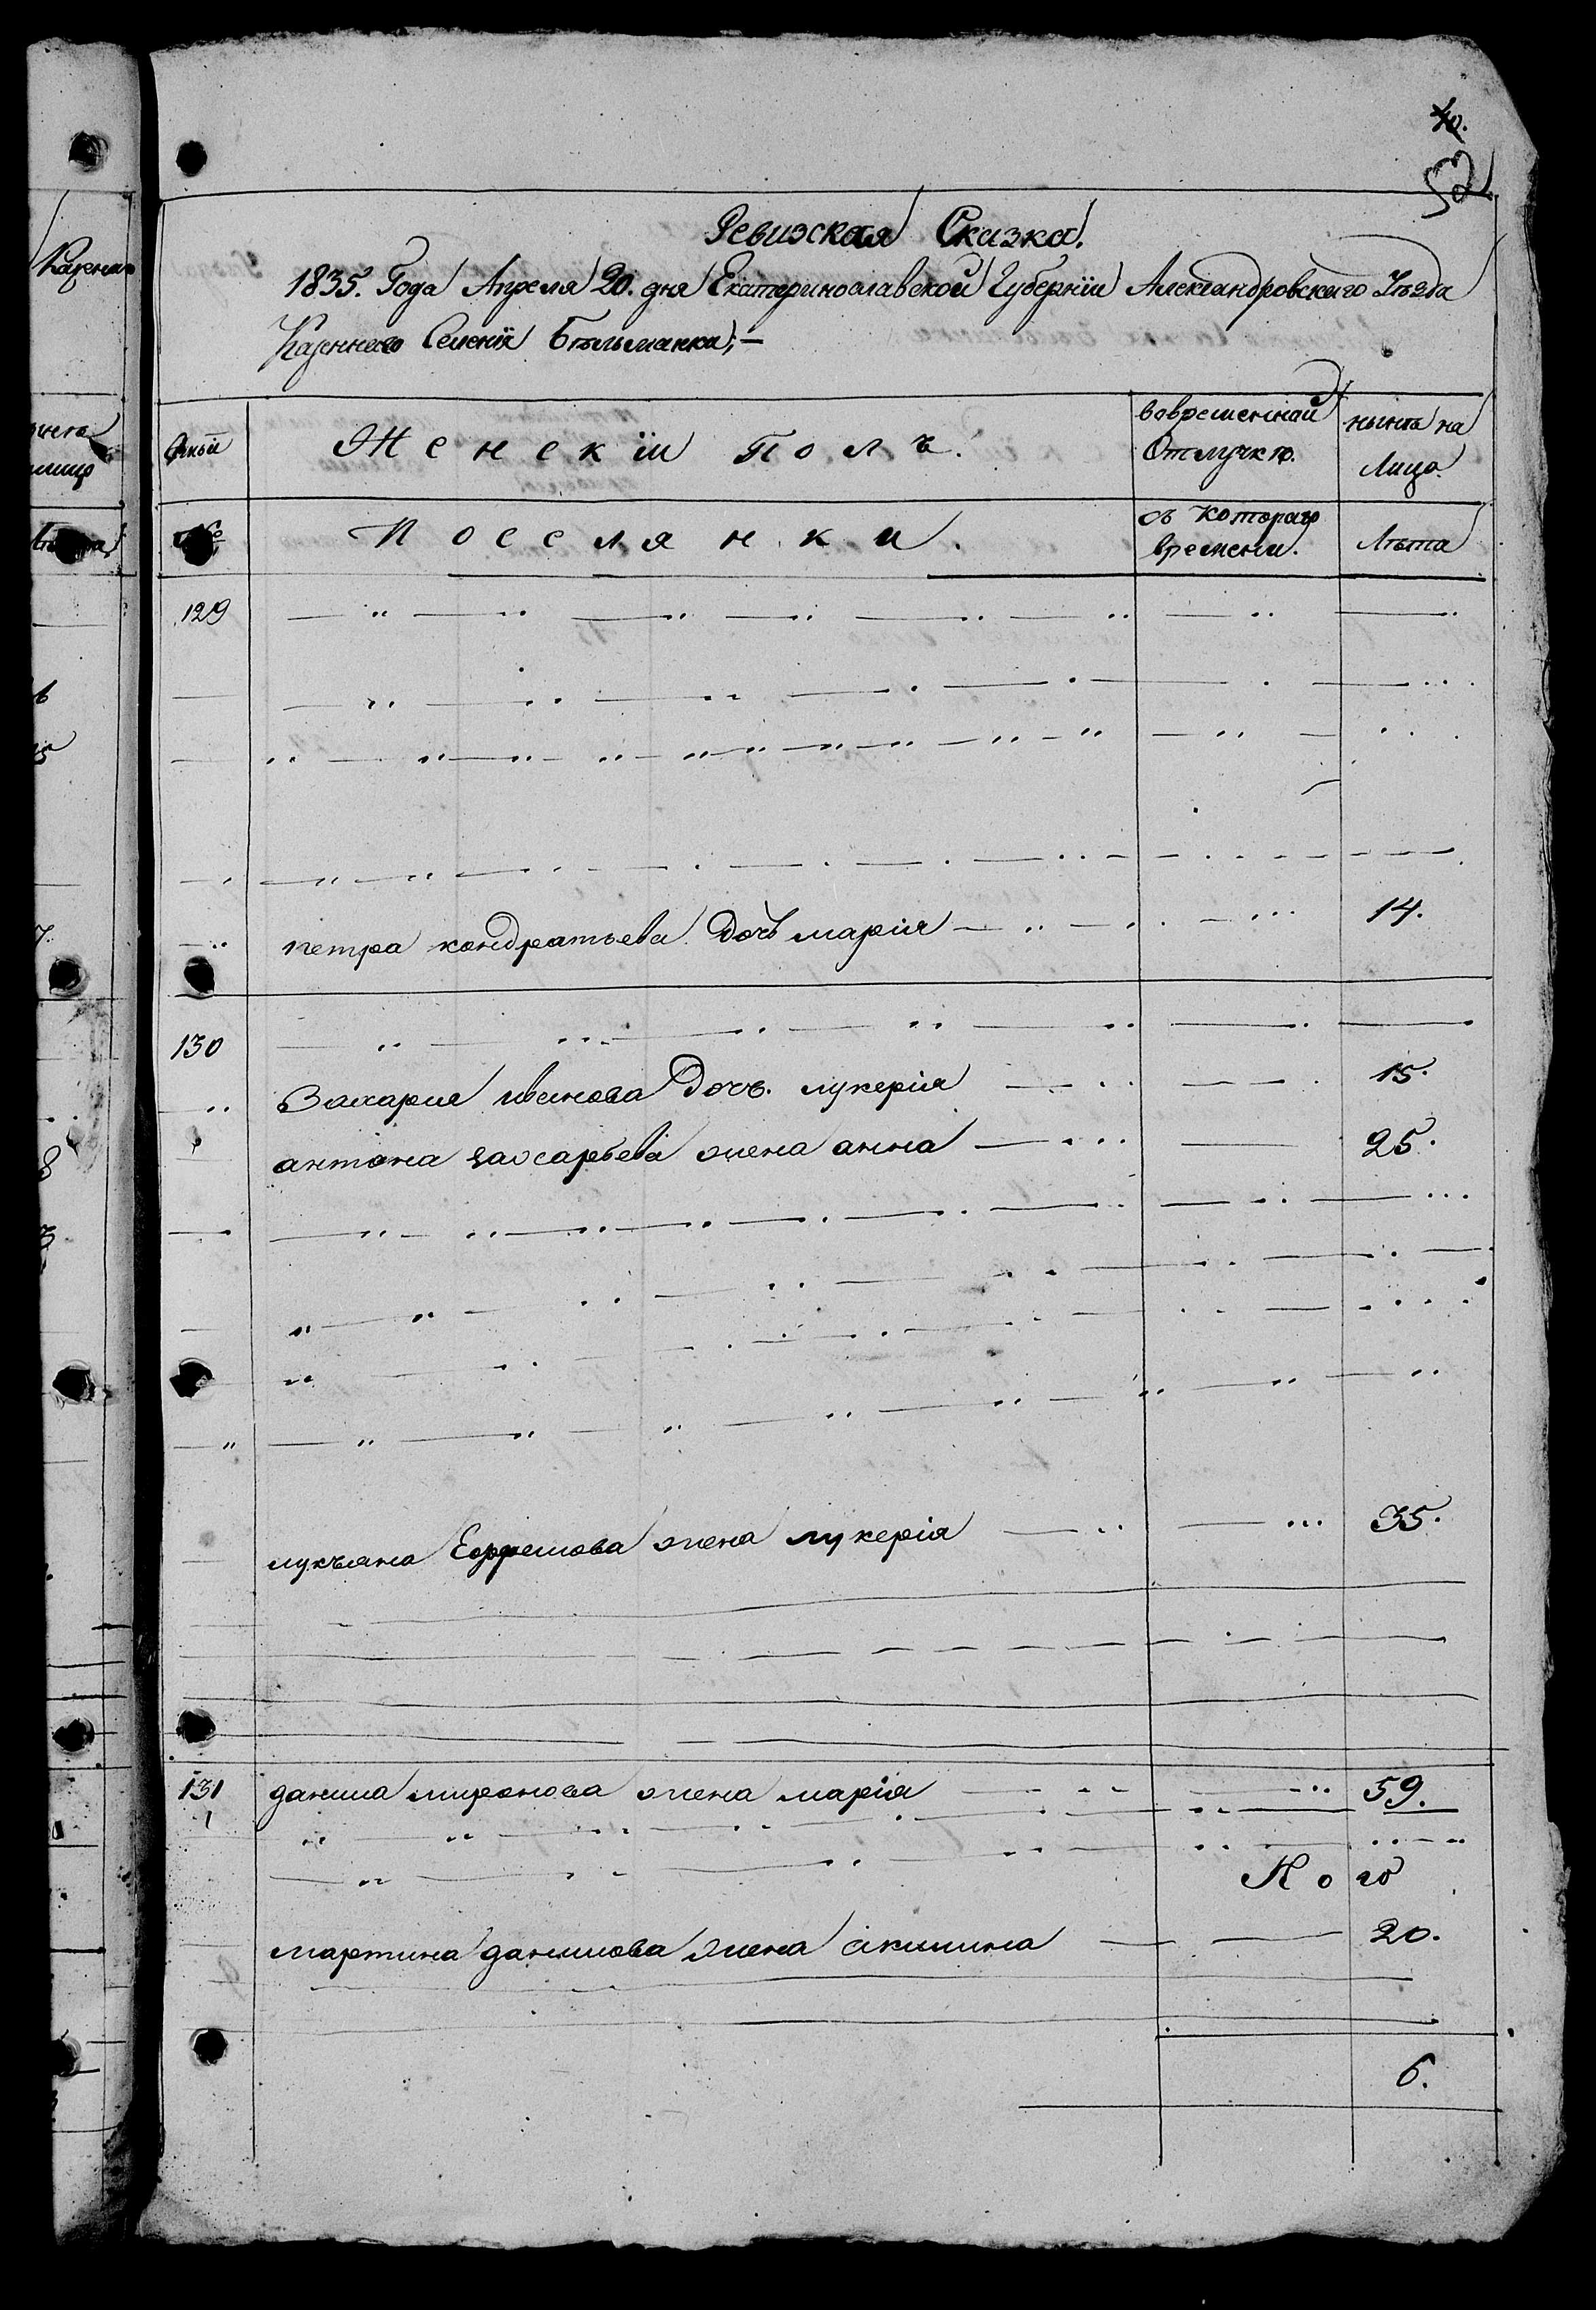 40.
52
Ревизская Сказка.
1835. Года Апреля 20. дня Екатеринославской Губернiи Александровскаго Уѣзда
Казеннаго Селенiя Бѣльманка; —
Женскiй Полъ.
вовременной Отлучкѣ.
нынѣ на Лицо.
№
Поселянки.
съ котораго времени.
Лѣта
129
петра кондратьева Дочь марiя 14.
130
Захария иванова Дочь. лукерiя 15.
антона захарьева жена анна 25.
лукъяна Ефремова жена лукерiя 35.
131 данила миронова жена марiя 59.
Ново
мартина данилова жена акилина 20.
6.